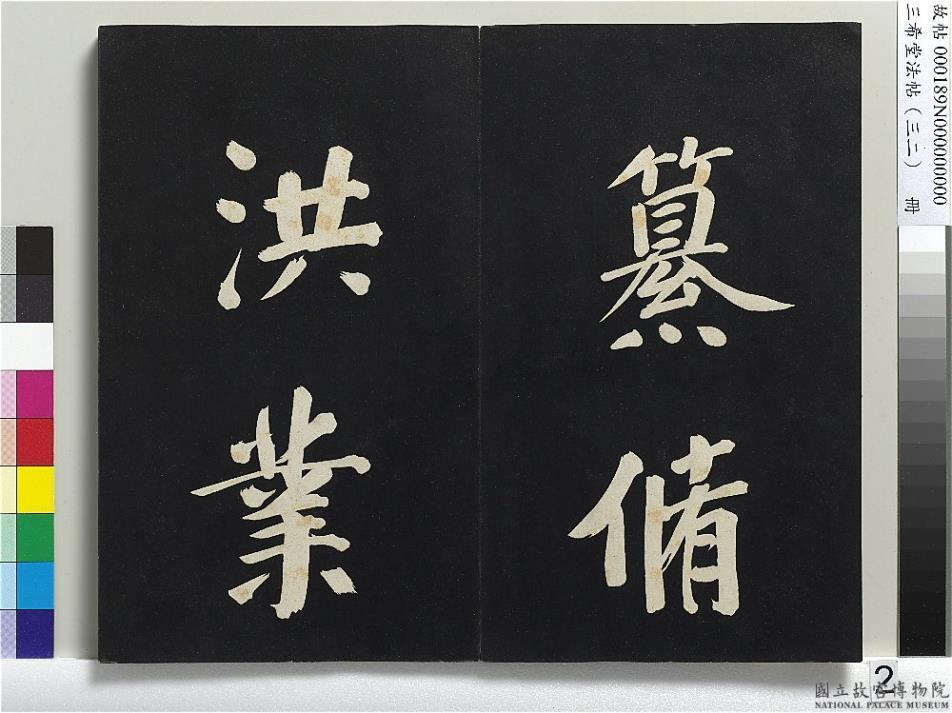 纂脩
洪業
故帖 000189N000000000
三希堂法帖(三二) 冊
2
國立故宮博物院
NATIONAL PALACE MUSEUM